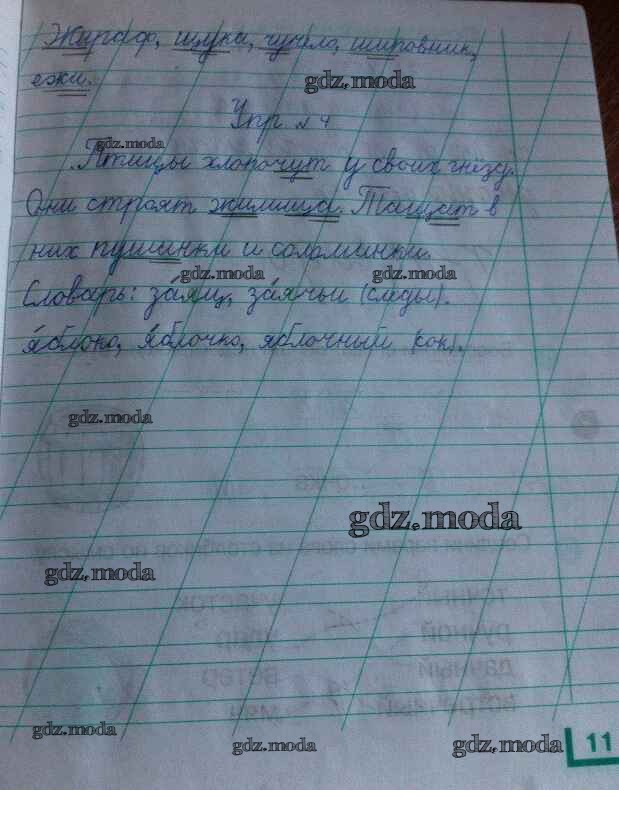 Жираф, щука, чучело, шиповник,
ежи.
gdz.moda
Упр. №4
gdz.moda
Птицы хлопочут у своих гнёзд.
Они строят жилища. Тащат в
них пушинки и соломинки.
gdz.moda gdz.moda
Словарь: заяц, заячьи (следы).
яблоко, яблочко, яблочный (сок).
gdz.moda
gdz.moda
gdz.moda
gdz.moda
gdz.moda
gdz.moda
11